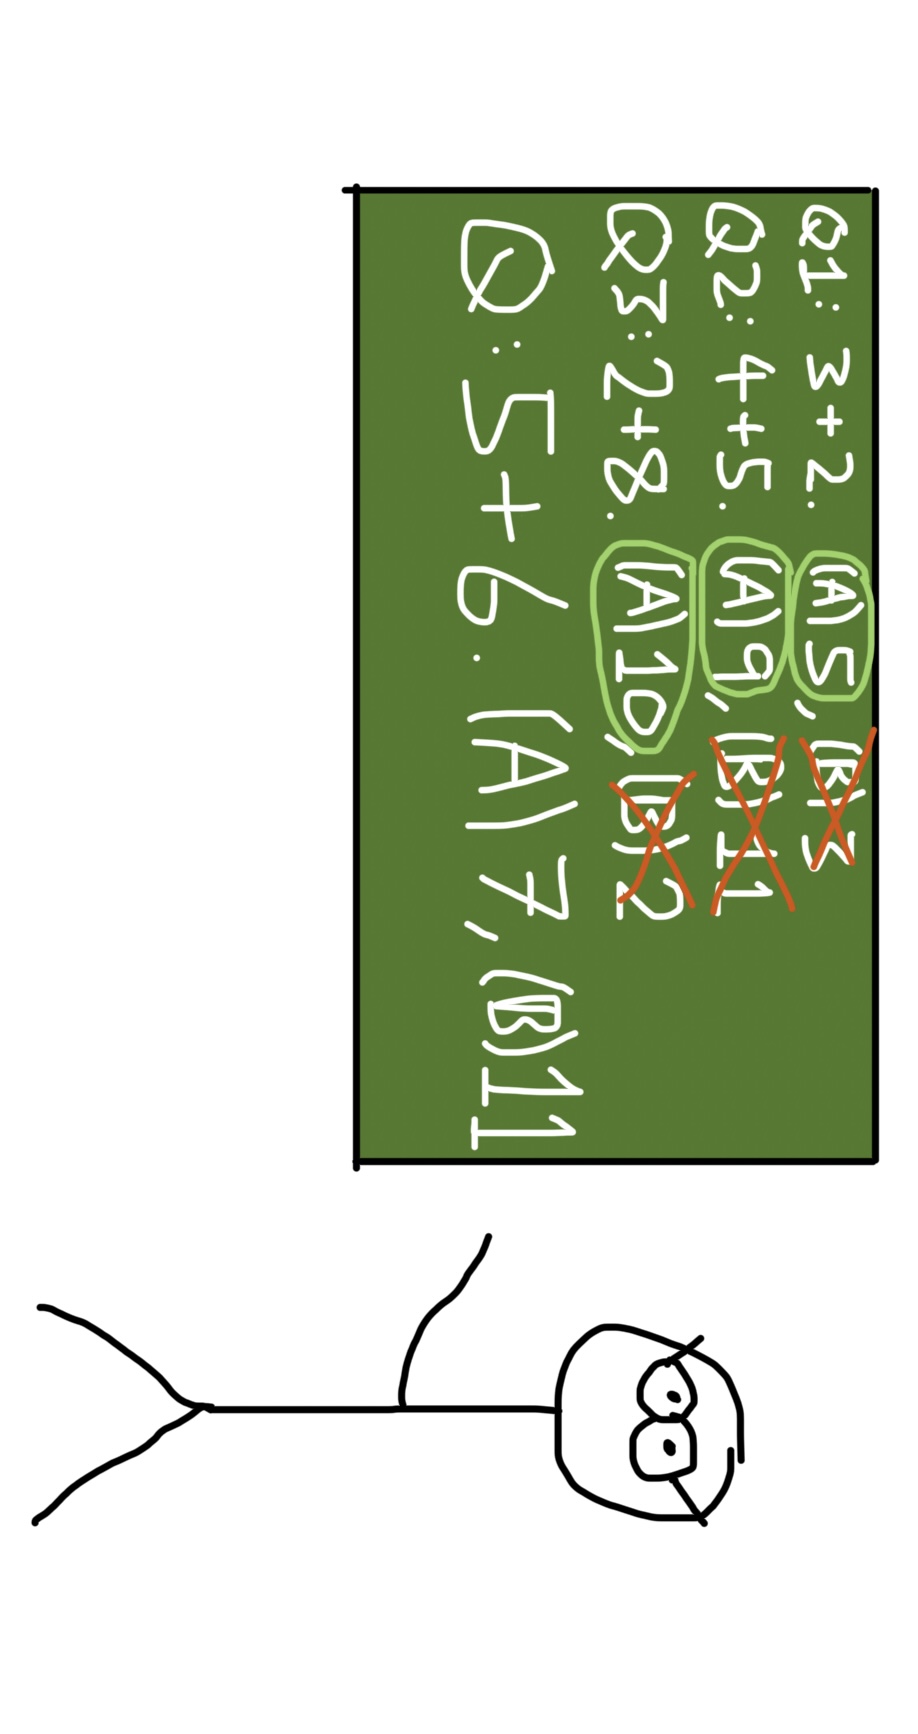 Q1: 3+2. (A) 5, (B) 3
Q2: 4+5. (A) 9, (B) 11
Q3: 2+8. (A) 10, (B) 2
Q: 5+6. (A) 7, (B) 11